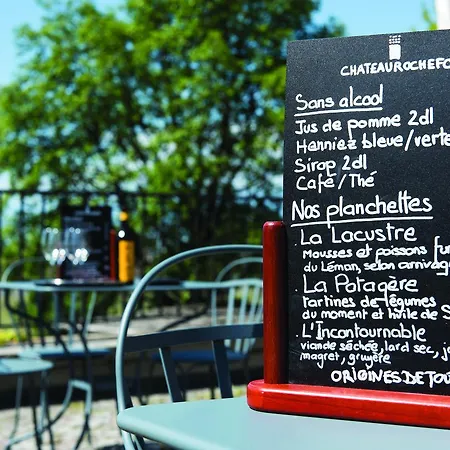 CHATEAUROCHEFO
Sans alcool
Jus de pomme 2dl
Henniez bleue/verte
Sirop 2dl
Café/Thé
Nos planchettes
. La Lacustre
Mousses et poissons fum
du Léman, selon arrivag
. La Potagère
tartines de légumes
du moment et huile de S
. L'Incontournable
viande séchée, lard sec, j
magret, gruyère
ORIGINES DE TOU